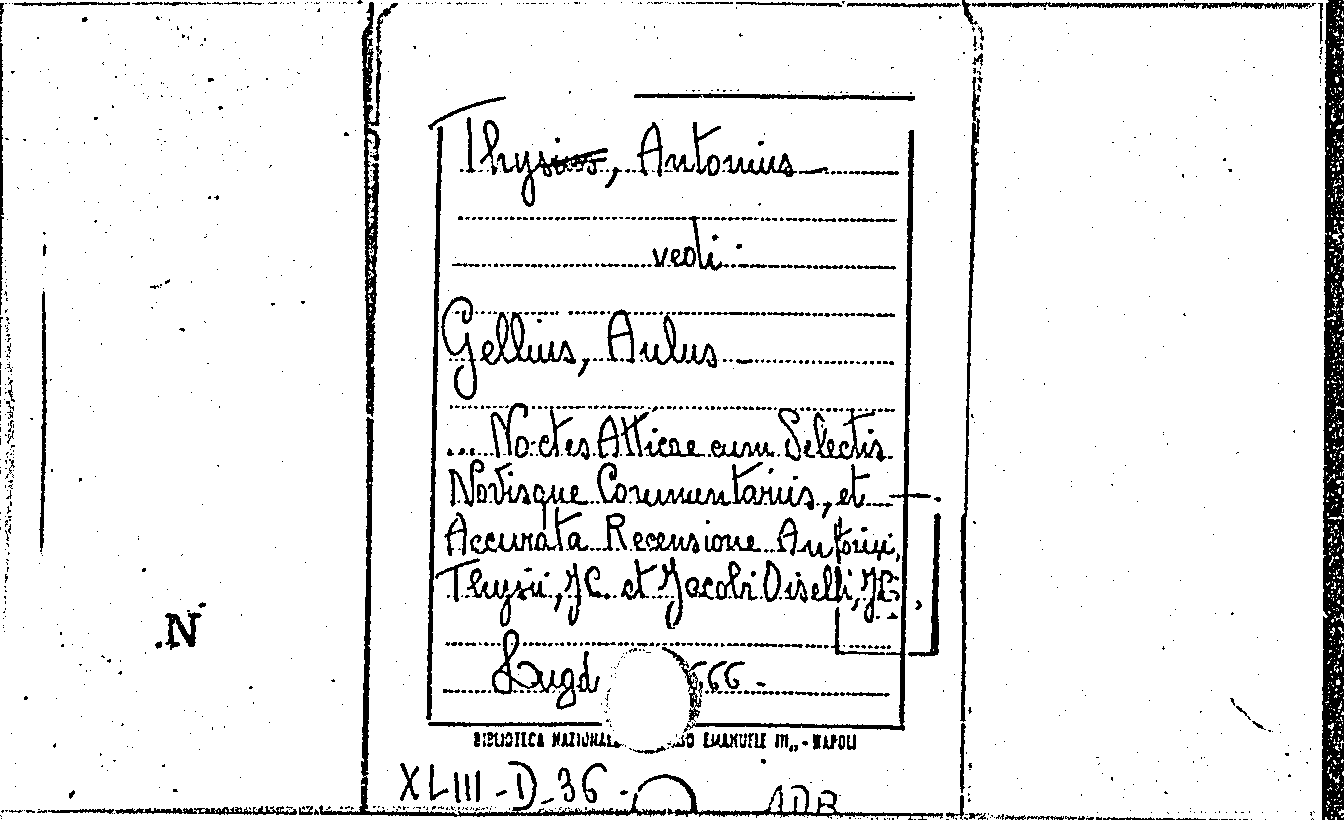 Thysius, Antonius
vedi:
Gellius, Aulus
... Noctes Atticae cum Selectis
Novisque Commentariis, et
Accurata Recensione Antonii
Thysii, JC. et Jacobi Oiselii, JC.,
Lugd 666.
BIBLIOTECA NAZIONALE EMANUELE III,, - NAPOLI
XLIII-D-36.
.N